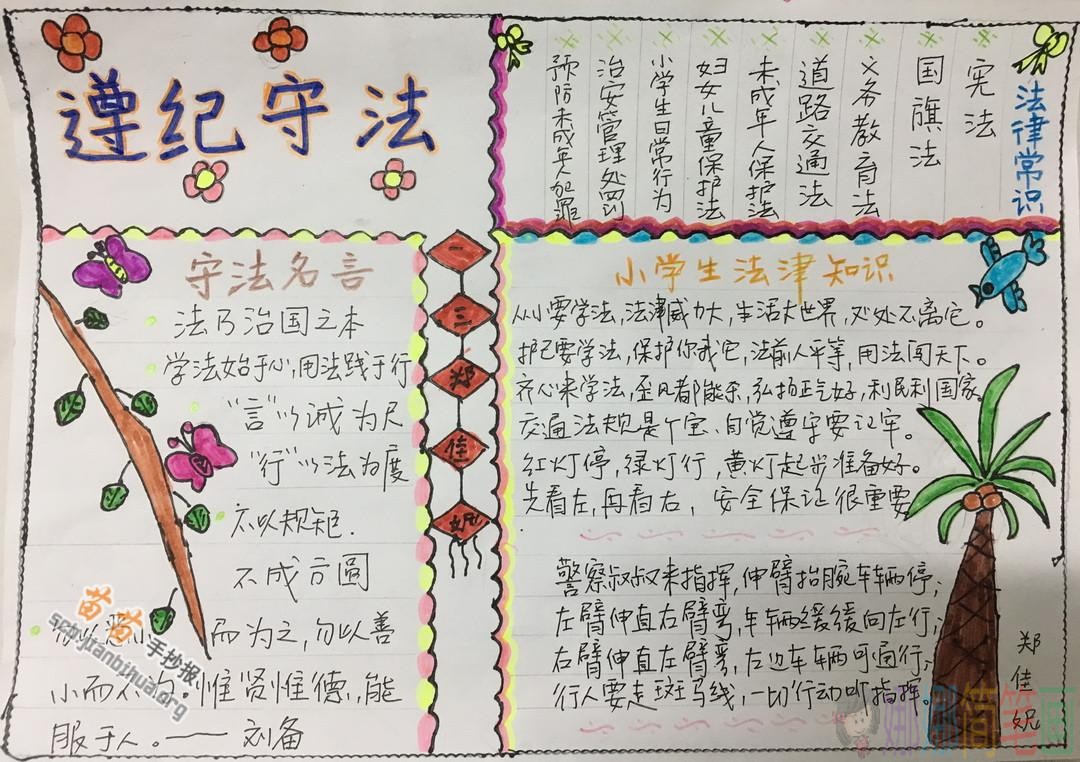 遵纪守法
法律常识
宪法
国旗法
义务教育法
道路交通法
未成年人保护法
妇女儿童保护法
小学生日常行为
治安管理处罚
预防未成年人犯罪
守法名言
法乃治国之本
学法始于心,用法践于行
“言”以诚为尺
“行”以法为度
不以规矩.
不成方圆
而为之,勿以善
小而不为.惟贤惟德,能
服于人。—— 刘备
一
三
郑
佳
妮
小学生法津知识
从小要学法,法津威力大,生活大世界,处处不离它。
护己要学法,保护你我它,法前人平等,用法闯天下。
齐心来学法,歪风都能杀,弘扬正气好,利民利国家。
交通法规是个宝、自觉遵守要记牢。
红灯停,绿灯行,黄灯起步准备好。
先看左,再看右,安全保证很重要
警察叔叔来指挥,伸臂抬腕车辆停;
左臂伸直右臂弯,车辆缓缓向左行;
右臂伸直左臂弯,左边车辆可通行;
行人要走斑马线,一切行动听指挥。
郑佳妮
苗苗手抄报
娜娜简笔画